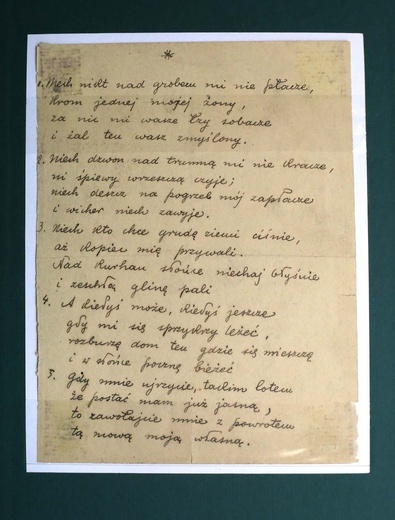 *
1. Niech nikt nad grobem mi nie płacze,
krom jednej mojej żony,
za nic mi wasze łzy sobacze
i żal ten wasz zmyślony.
2. Niech dzwon nad trumną mi nie kracze,
ni śpiewy wrzeszczą czyje;
niech deszcz na pogrzeb mój zapłacze
i wicher niech zawyje.
3. Niech kto chce grudę ziemi ciśnie,
aż kopiec mię przywali.
Nad kurhan słońce niechaj błyśnie
i zeschłą glinę pali
4. A kiedyś może, kiedyś jeszcze
gdy mi się sprzykrzy leżeć,
rozburzę dom ten gdzie się mieszczę
i w słońce pocznę bieżeć
5. Gdy mnie ujrzycie, takim lotem
że postać mam już jasną,
to zawołajcie mnie z powrotem
tą mową moją własną.